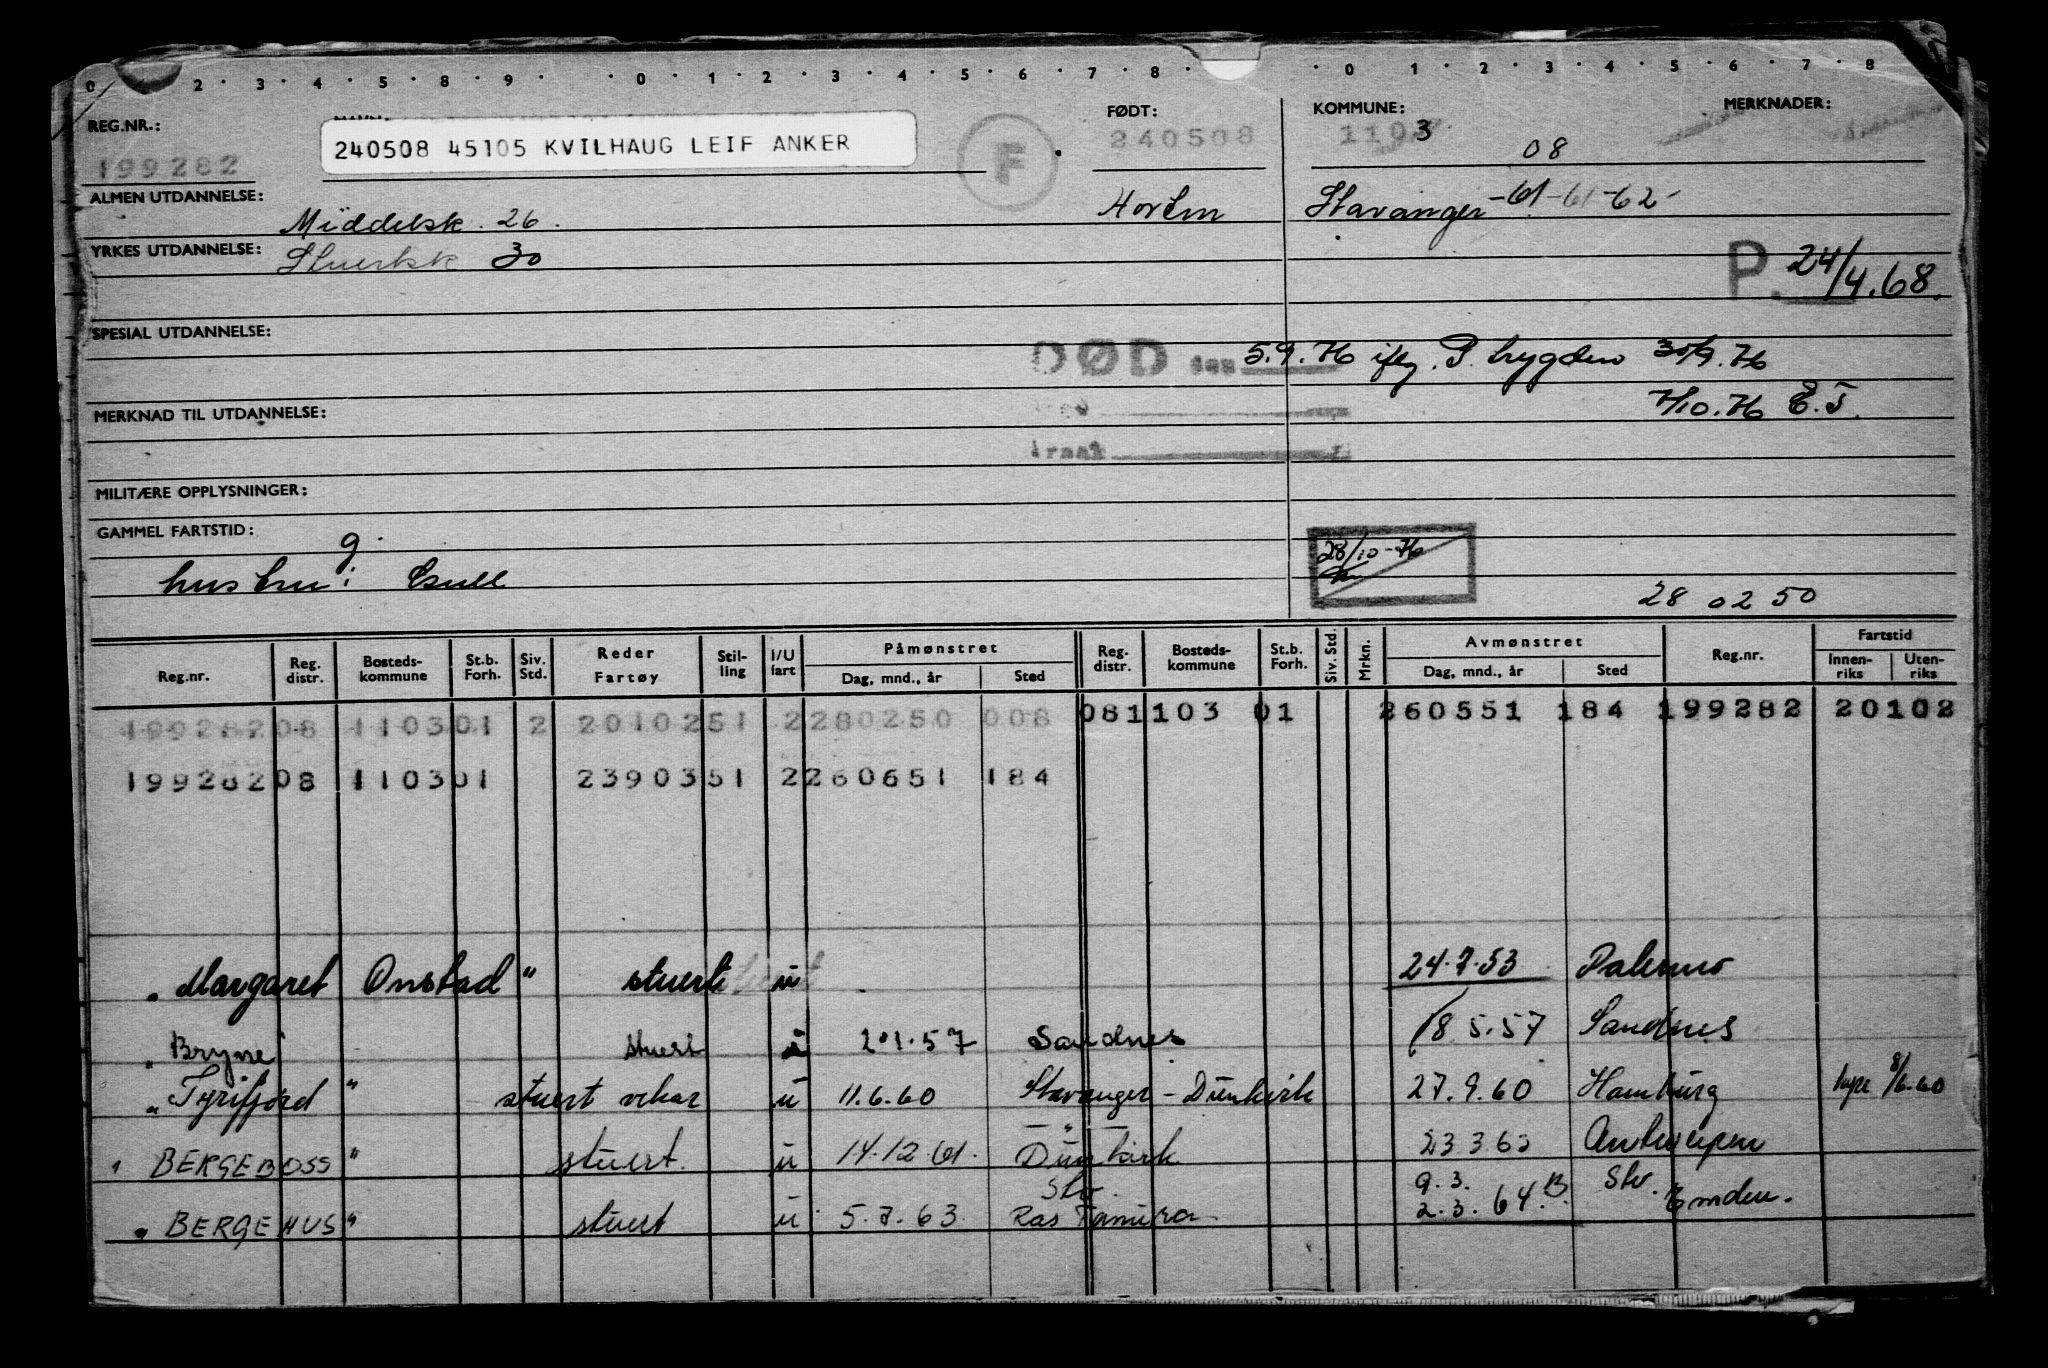 0 2 3 4 5 8 9 0 1 2 3 4 5 6 7 8 0 1 2 3 4 5 6 7 8
REG.NR.: FØDT: KOMMUNE: MERKNADER:
199282 240508 45105 KVILHAUG LEIF ANKER F 240508 110 3 08
ALMEN UTDANNELSE: Middelsk. 26. Horten Stavanger -61-61-62-
YRKES UTDANNELSE: Stuertsk 30
P. 24/4.68.
SPESIAL UTDANNELSE:
DØD den 5.9.76 iflg. P. trygden 30/9.76
MERKNAD TIL UTDANNELSE: 7/10.76 E.T.
MILITÆRE OPPLYSNINGER:
GAMMEL FARTSTID:
g.
hustru:
28/10-76
28 02 50
Reg.nr. Reg. distr. Bosteds-kommune St.b. Forh. Siv. Std. Reder Fartøy Stil-ling I/U fart Påmønstret Dag, mnd., år Sted Reg. distr. Bosteds-kommune St.b. Forh. Siv. Std. Mrkn. Avmønstret Dag, mnd., år Sted Reg.nr. Fartstid Innen-riks Uten-riks
199282 08 1103 01 2 20102 51 2 280250 008 08 1103 01 260551 184 199282 20102
199282 08 1103 01 23903 51 2 260651 184
"Margaret Onstad" stuert u 24.7.53 Palermo
"Bryne" stuert 2.1.57 Sandnes 18.5.57 Sandnes
"Tyrifjord" stuert vikar u 11.6.60 Stavanger - Dunkirk 27.9.60 Hamburg hyre 8/6.60
— " —
"BERGEBOSS" stuert. u 14.12.61. Dunkirk 23.3.63 Antwerpen
Stv. 9.3. Stv.
"BERGEHUS" stuert u 5.7.63. Ras Tanura 2.3.64 B. Emden.